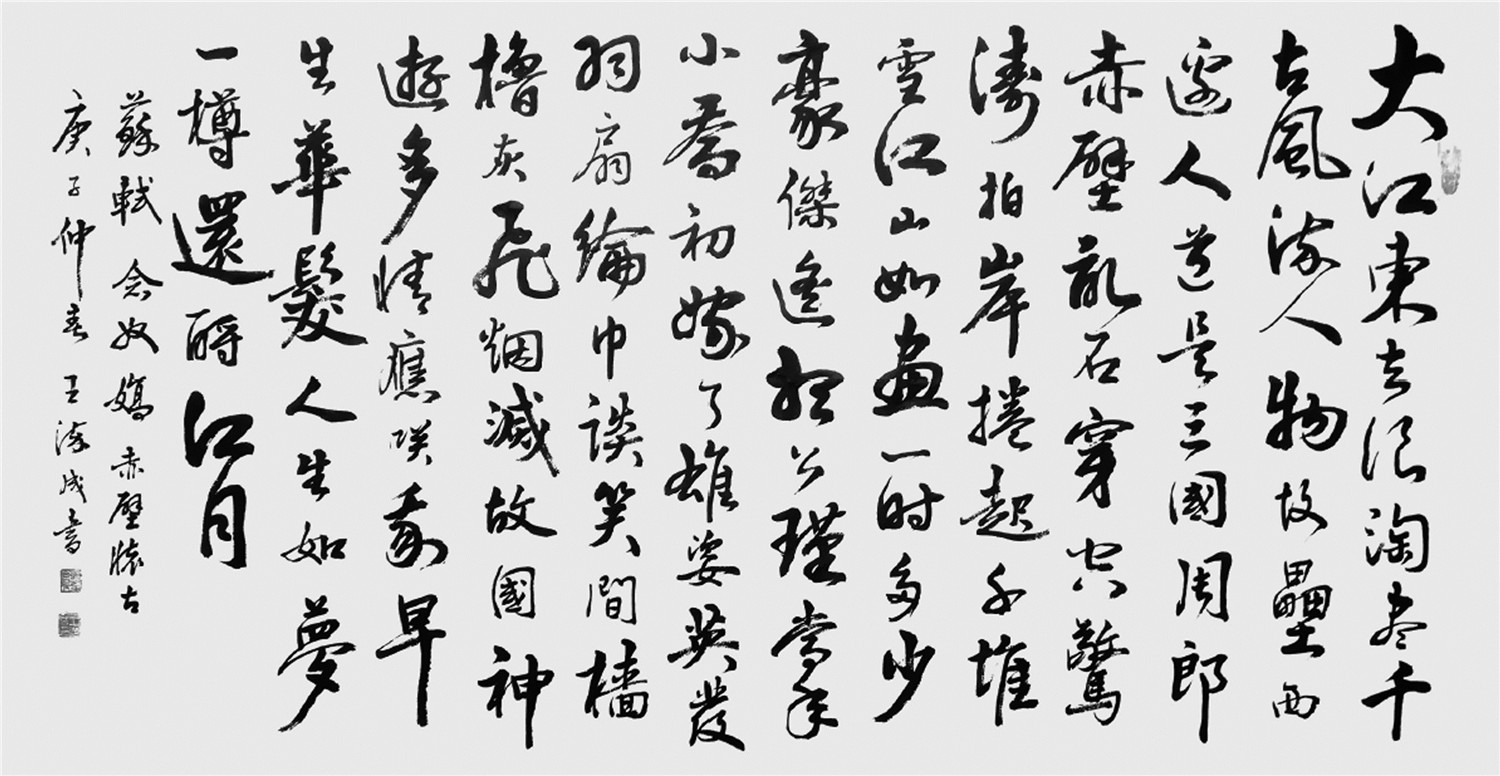 大江東去浪淘盡千
古風流人物故壘西
邊人道是三國周郎
赤壁亂石穿空驚
濤拍岸捲起千堆
雪江山如畫一时多少
豪傑遙想公瑾當年
小喬初嫁了雄姿英發
羽扇綸巾談笑間檣
櫓灰飛烟滅故國神
遊多情應咲我早
生華髮人生如夢
一樽還酹江月
蘇軾念奴嬌赤壁懷古
庚子仲春王成書